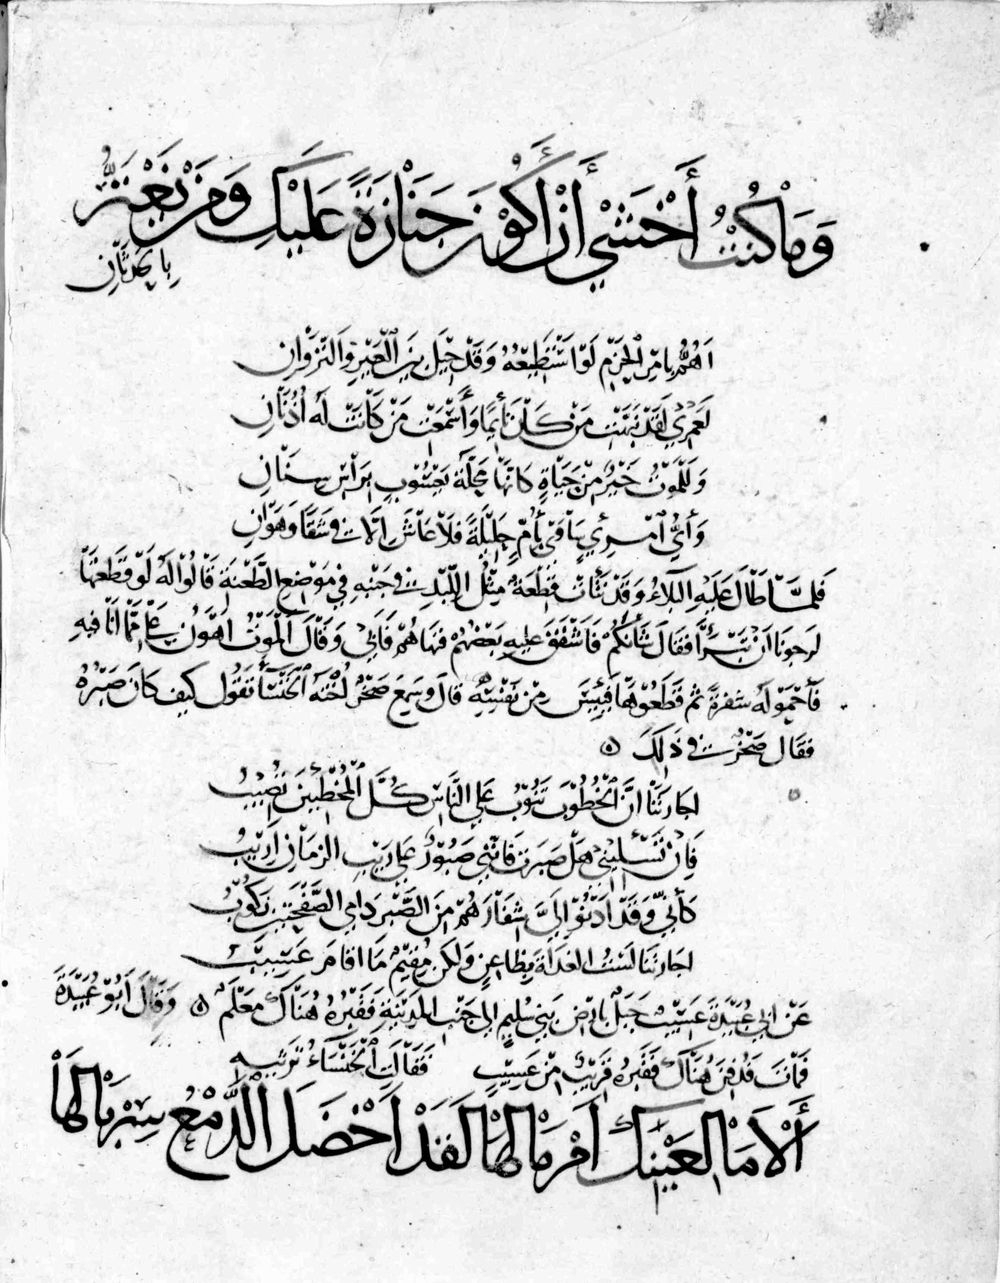 وَمَا كُنْتُ أَخْشَى أَنْ أَكُوْنَ جَنَازَةً عَلَيْكِ وَمَنْ يَغْتَرُّ
بِالحَدَثَانِ
اَهُمُّ بِاَمْرِ الحَزْمِ لَوْ اَسْتَطِيْعُهُ وَقَدْ حِيْلَ بَيْنَ العَيْرِ وَالنَّزَوَانِ
لَعَمْرِي لَقَدْ نَبَّهْتِ مَنْ كَانَ نَائِمًا وَأَسْمَعْتِ مَنْ كَانَتْ لَهُ أُذُنَانِ
وَلَلْمَوْتُ خَيْرٌ مِنْ حَيَاةٍ كَانَّهَا مَحِلَّةُ يَعْسُوْبٍ بِرَأْسِ سِنَانِ
وَأَيُّ امْرِيءٍ سَاوَى بِأُمٍّ حَلِيْلَةً فَلَا عَاشَ اِلَّا فِي شَقًا وَهَوَانِ
فَلَمَّا طَالَ عَلَيْهِ البَلَاءُ وَقَدْ نَتَأَتْ قِطْعَةٌ مِثْلُ اللِّبْدِ فِي جَنْبِهِ فِي مَوْضِعِ الطَّعْنَةِ قَالُوا لَهُ لَوْ قَطَعْتَهَا
لَرَجَوْنَا اَنْ تَبْرَأَ فَقَالَ شَأْنَكُمْ فَاَشْفَقَ عَلَيْهِ بَعْضُهُمْ فَنَهَاهُمْ فَاَبَى وَقَالَ الْمَوْتُ اَهْوَنُ عَلَيَّ مِمَّا اَنَا فِيهِ
فَاَحْمَوْا لَهُ شَفْرَةً ثُمَّ قَطَعُوْهَا فَيَئِسَ مِنْ نَفْسِهِ قَالَ وَسَمِعَ صَخْرٌ اُخْتَهُ الخَنْسَاءَ تَقُوْلُ كَيْفَ كَانَ صَبْرُهُ
فَقَالَ صَخْرٌ فِي ذَلِكَ ه
اَجَارَتَنَا اِنَّ الخُطُوْبَ تَنُوْبُ عَلَى النَّاسِ كُلَّ الْمُخْطِئِينَ تُصِيْبُ
فَاِنْ تَسْأَلِيْنِي هَلْ صَبَرْتَ فَاِنَّنِي صَبُوْرٌ عَلَى رَيْبِ الزَّمَانِ اَرِيْبُ
كَأَنِّي وَقَدْ اَدْنَوْا اِلَيَّ شِفَارَهُمْ مِنَ الصَّبْرِ دَامِي الصَّفْحَتَيْنِ نَكُوْبُ
اَجَارَتَنَا لَسْتُ الغَدَاةَ بِظَاعِنٍ وَلَكِنْ مُقِيْمٌ مَا اَقَامَ عَسِيْبُ
عَنْ اَبِي عُبَيْدَةَ عَسِيْبٌ جَبَلٌ بِاَرْضِ بَنِي سُلَيْمٍ اِلَى جَنْبِ المَدِيْنَةِ فَقَبْرُهُ هُنَاكَ مَعْلَمٌ ه وَقَالَ اَبُوْ عُبَيْدَةَ
فَمَاتَ فَدُفِنَ هُنَاكَ فَقَبْرُهُ قَرِيْبٌ مِنْ عَسِيْبٍ فَقَالَتِ الْخَنْسَاءُ تَرْثِيْهِ
أَلَا مَا لِعَيْنِكِ اَمْ مَا لَهَا لَقَدْ اَخْضَلَ الدَّمْعُ سِرْبَالَهَا